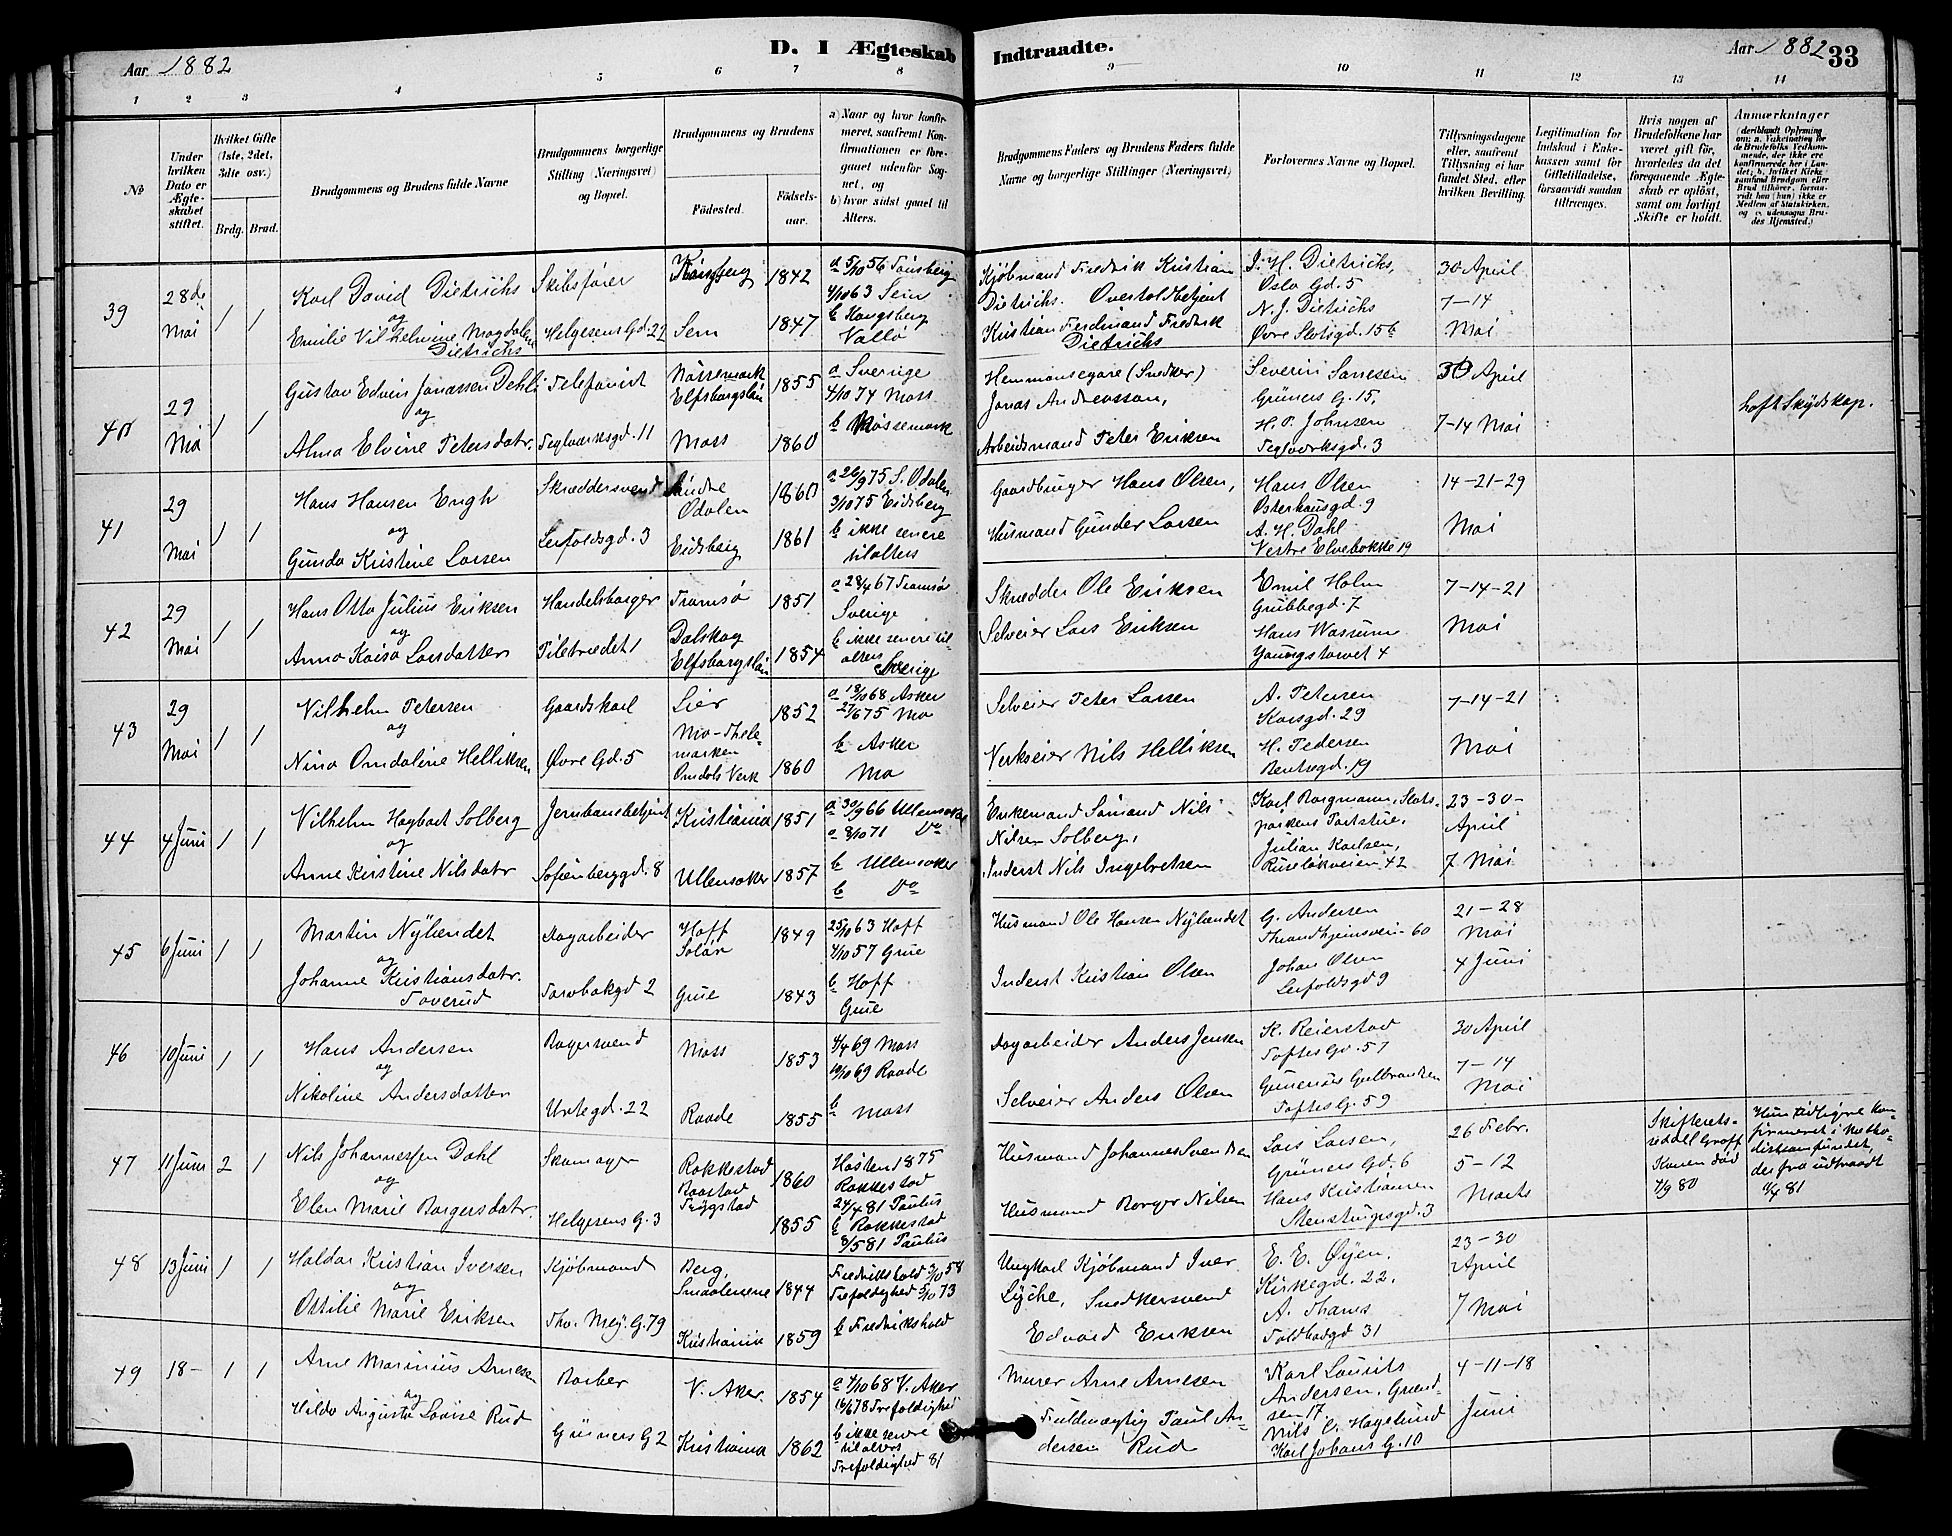 Aar 1882
D. I Ægteskab Indtraadte.
Aar 1882
33
1 2 3 4 5 6 7 8 9 10 11 12 13 14
No
Under hvilken Dato er Ægteskabet stiftet.
Hvilket Gifte (1ste, 2det, 3dte osv.)
Brdg. Brud.
Brudgommens og Brudens fulde Navne
Brudgommens borgerlige Stilling (Næringsvei) og Bopæl.
Brudgommens og Brudens
Fødested.
Fødselsaar.
a) Naar og hvor konfirmeret, saafremt Konfirmationen er foregaaet udenfor Sognet, og
b) hvor sidst gaaet til Alters.
Brudgommens Faders og Brudens Faders fulde Navne og borgerlige Stillinger (Næringsvei)
Forlovernes Navne og Bopæl.
Tillysningsdagene eller, saafremt Tillysning ei har fundet Sted, efter hvilken Bevilling.
Legitimation for Indskud i Enkekassen samt for Giftetilladelse, forsaavidt saadan tiltrænges.
Hvis nogen af Brudefolkene har været gift før, hvorledes da det foregaaende Ægteskab er opløst, samt om lovligt Skifte er holdt.
Anmærkninger
39
28de Mai
1 1
Karl David Dietrichs
og
Emilie Vilhelmine Magdalene Dietrichs
Skibsfører
Helgesens Gd. 22
Kongsberg
Sem
1842
1847
a 5/10 56 Tønsberg
4/10 63 Sem
b Kongsberg
Vallø
Kjøbmand Fredrik Kristian
Dietrichs. Overtoldbetjent
Kristian Ferdinand Fredrik
Dietrichs
J. H. Dietrichs,
Oslo Gd. 5
N. J. Dietrichs
Øvre Slotsgd. 15b
30 April
7-14
Mai
40
29 Mai
1 1
Gustav Edvin Jonassen Dehli
og
Alma Elvine Petersdatr.
Telefonist
Teglverksgd. 11
Nössemark
Elfsborgslän
Moss
1855
1860
a Sverige
4/10 74 Moss
b Nössemark
Hemmansegare (Snedker)
Jonas Andreasson,
Arbeidsmand Peter Eriksen
Severin Sørensen
Grüners G. 15,
H. P. Johnsen
Teglverksgd. 3
30 April
7-14 Mai
41
29 Mai
1 1
Hans Hansen Engh
og
Gunda Kristine Larsen
Skræddersvend
Leifoldsgd. 3
Søndre
Odalen
Eidsberg
1860
1861
a 26/9 75 S. Odalen
3/10 75 Eidsberg
b ikke senere
tilalters
Gaardbruger Hans Olsen,
Husmand Gunder Larsen
Hans Olsen
Østerhausgd. 9
A. H. Dahl
Vestre Elvebakke 19
14-21-29
Mai
42
29 Mai
1 1
Hans Otto Julius Eriksen
og
Anna Kajsa Larsdatter
Handelsborger
Piletrædet 1
Tromsø
Dalskog
Elfsborgslän
1851
1854
a 28/4 67 Tromsø
Sverige
b ikke senere til
alters
Sverige
Skrædder Ole Eriksen
Selveier Lars Eriksen
Emil Holm
Grubbegd. 7
Hans Wassum
Youngstorvet 4
7-14-21
Mai
43
29 Mai
1 1
Vilhelm Petersen
og
Nina Omdaline Helliksen
Gaardskarl
Øvre Gd. 5
Lier
Mo-Thele-
marken
Omdals Verk
1852
1860
a 18/10 68 Asker
27/6 75 Mo
b Asker
Mo
Selveier Peter Larsen
Verkseier Nils Helliksen
A. Petersen
Korsgd. 29
H. Pedersen
Bentsegd. 19
7-14-21
Mai
44
4 Juni
1 1
Vilhelm Hagbart Solberg
og
Anne Kirstine Nilsdatr
Jernbanebetjent
Sofienberggd. 8
Kristiania
Ullensaker
1851
1857
a 30/9 66 Ullensaker
a 8/10 71 Do
b Ullensaker
b Do
Enkemand Sømand Nils
Nilsen Solberg,
Inderst Nils Ingebretsen
Karl Borgmann, Slots-
parkens Portstue,
Julian Karlsen,
Ruseløkveien 42
23-30-
April
7 Mai
45
6 Juni
1 1
Martin Nylændet
og
Johanne Kristiansdatr.
Toverud
Dagarbeider
Torvbakgd 2
Hoff
Solør
Grue
1849
1843
25/10 63 Hoff
4/10 57 Grue
b Hoff
Grue
Husmand Ole Hansen Nylændet
Inderst Kristian Olsen
G. Andersen
Throndhjemsvei 60
Johan Olsen
Leifoldsgd 9
21-28
Mai
4 Juni
46
10 Juni
1 1
Hans Andersen
og
Nikoline Andersdatter
Bagersvend
Urtegd. 22
Moss
Raade
1853
1855
4/4 69 Moss
10/10 69 Raade
b Moss
Dagarbeider Anders Jensen
Selveier Anders Olsen
K. Reierstad
Toftes Gd. 57
Gulbrandsen
Toftes G. 59
30 April
7-14
Mai
47
11 Juni
2 1
Nils Johannessen Dahl
og
Elen Marie Borgersdatr.
Skomager
Helgesens G. 3
Rakkestad
Trygstad
1860
1855
Høsten 1875
Rakkestad
24/4 81 Paulus
b Rakkestad
8/5 81 Paulus
Husmand Johannes Svendsen
Husmand Borger Nilsen
Lars Larsen,
Grüners Gd. 6
Hans Kristiansen
Stenstrupsgd. 3
26 Febr.
5-12
Marts
Skifterets-
Konen død
7/9 80
Hun tidligere kon-
firmeret i Metho-
distsamfundet,
derfra udtraadt
81
48
13 Juni
1 1
Haldor Kristian Iversen
og
Ottilie Marie Eriksen
Kjøbmand
Thv. Mej. G. 79
Berg,
Smaalenene
Kristiania
1844
1859
Fredrikshald 3/10 58
Trefoldighed 5/10 73
b Fredrikshald
Ungkarl Kjøbmand Iver
Lyche, Snedkersvend
Edvard Eriksen
E. E. Øyen,
Kirkegd. 22,
A. Thanes
Toldbodgd 31
23-30
April
7 Mai
49
18-
1 1
Arne Marinius Arnesen
og
Hilda Augusta Lovise Rud
Barber
Grüners G 2
V. Aker
Kristiania
1854
1862
a 4/10 68 V. Aker
16/6 78 Trefoldighed
b ikke senere
tilalters
Trefoldighed 81
Murer Arne Arnesen
Fuldmægtig Paul An-
dersen Rud
Karl Laurits
Andersen, Grænd-
sen 17
Nils C. Hagelund
Karl Johans G. 10
4-11-18
Juni